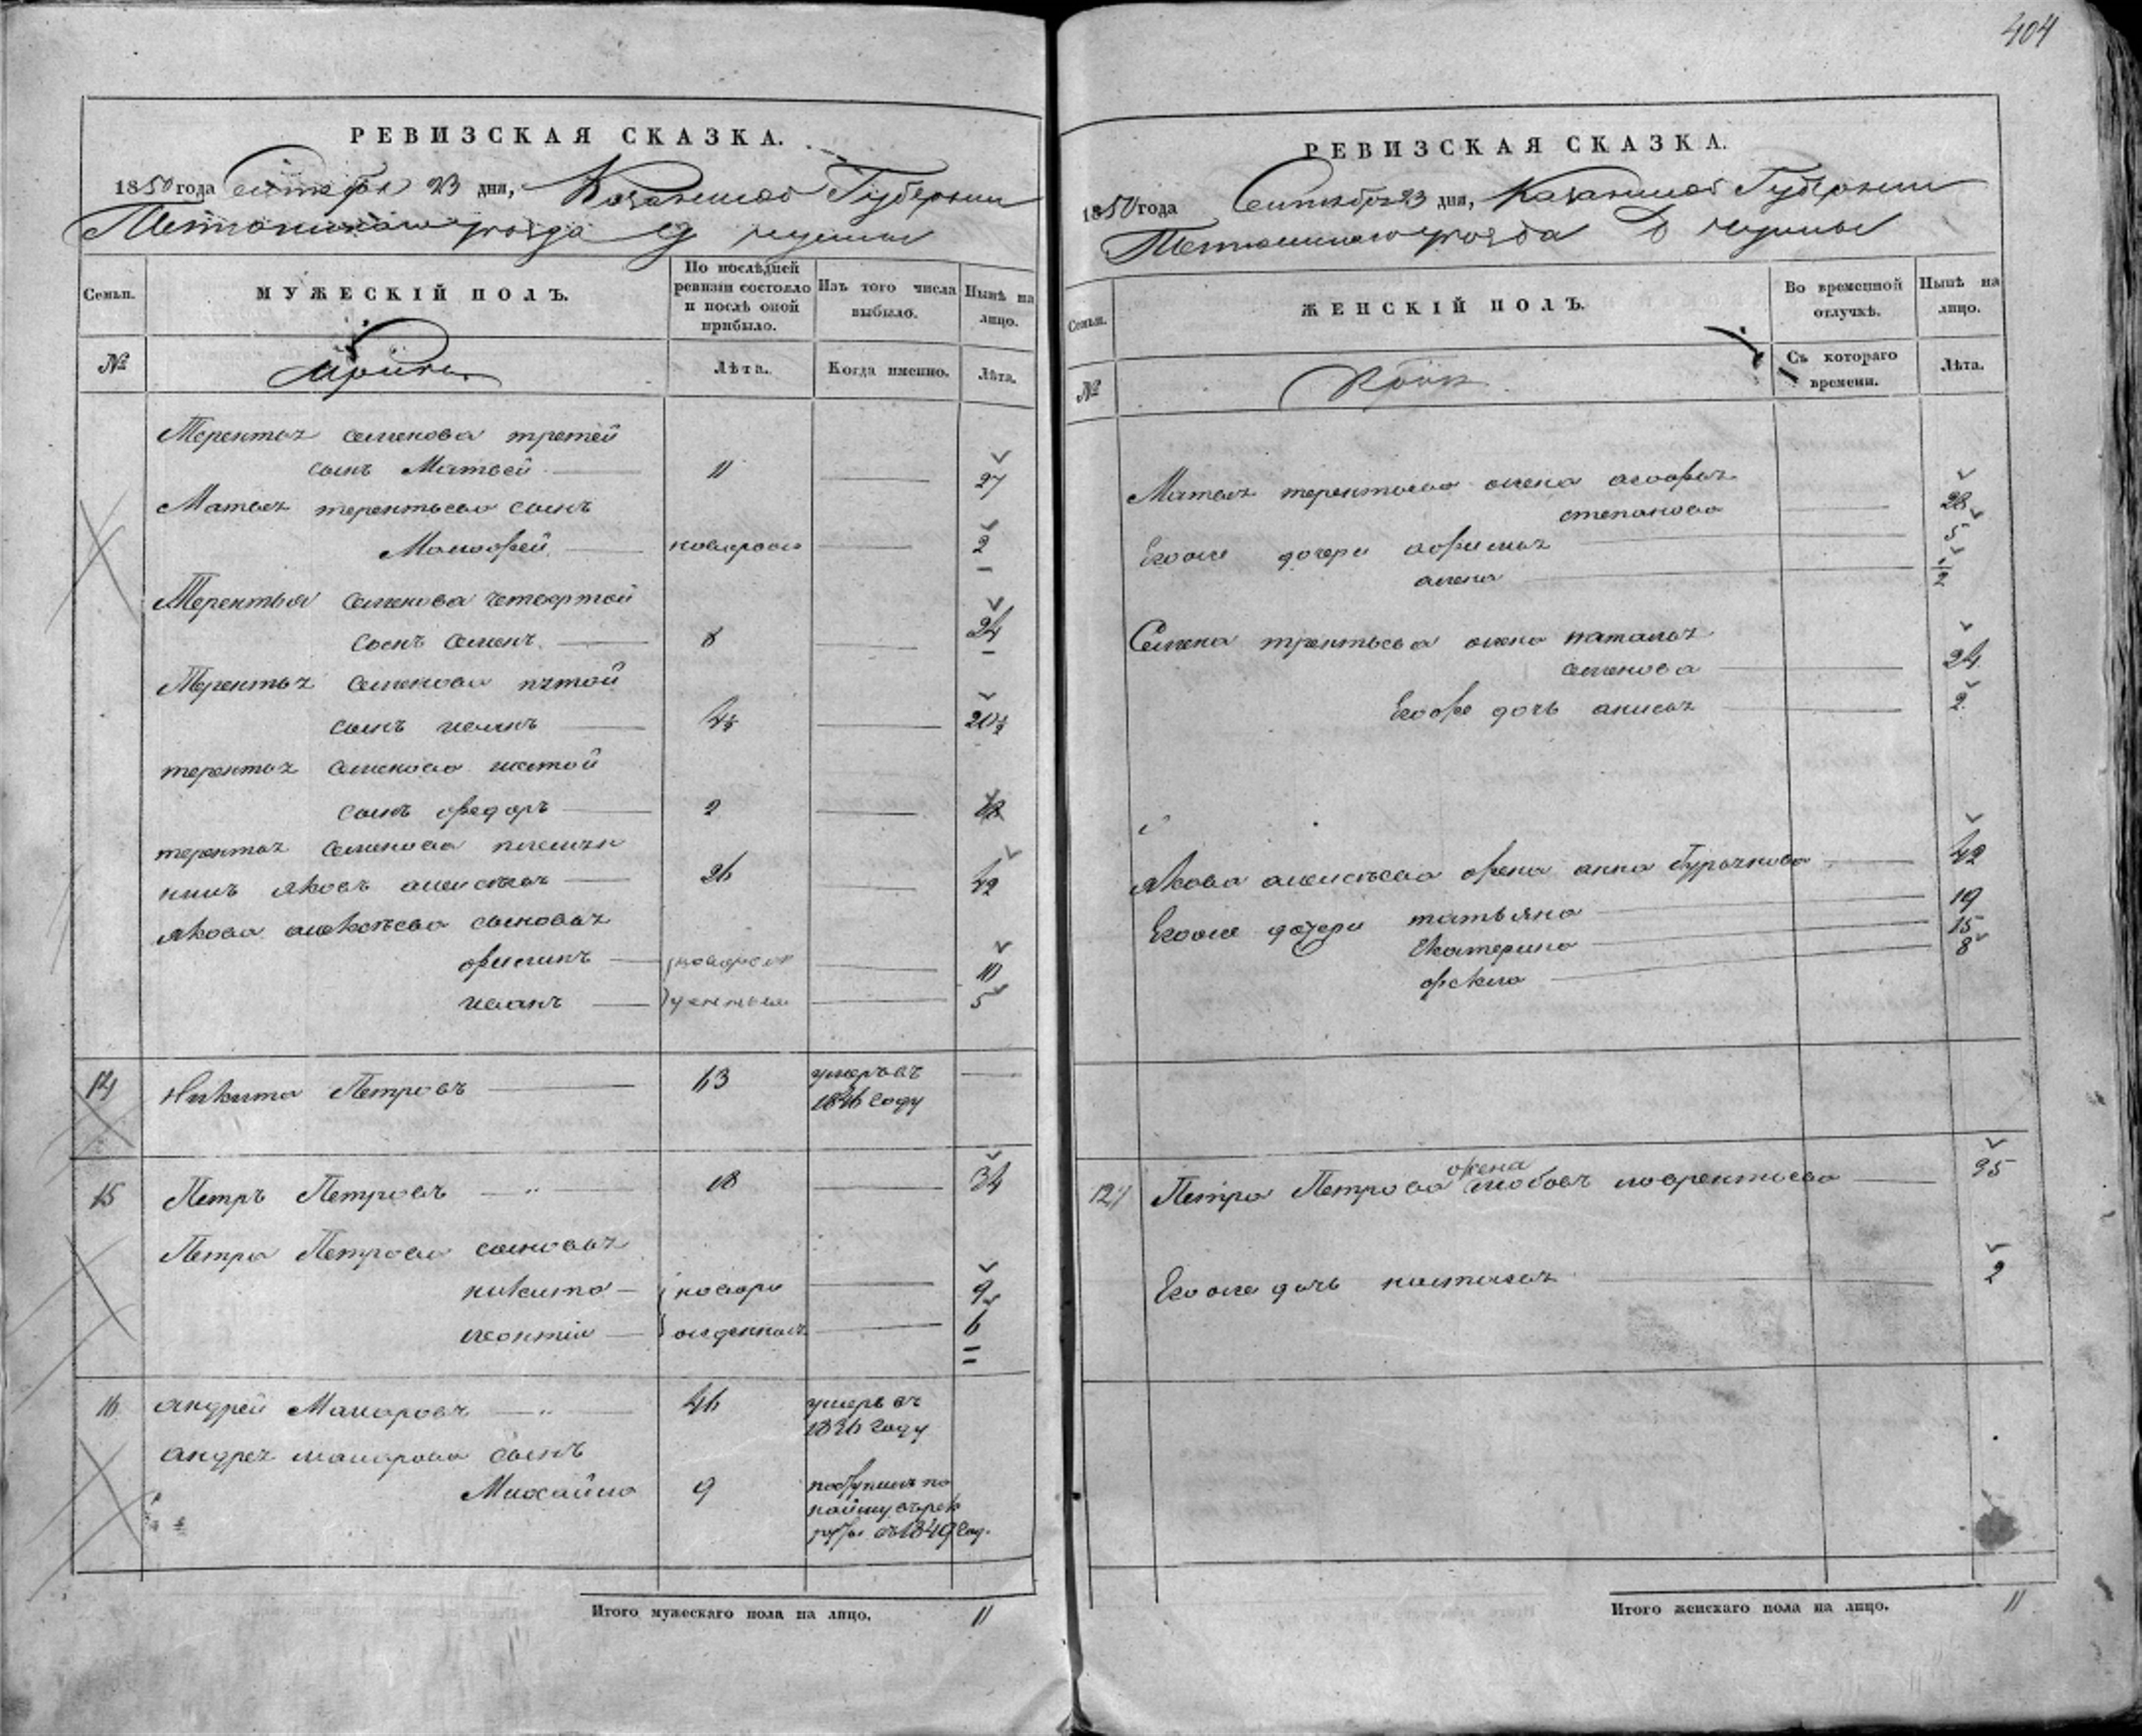 404
РЕВИЗСКАЯ СКАЗКА.
1850 года Сентября 23 дня, Казанской Губернии
Тетюшскаго уезда
Семьи.
МУЖЕСКІЙ ПОЛЪ.
По послѣдней ревизіи состояло и послѣ оной прибыло.
Изъ того числа выбыло.
Нынѣ на лицо.
№
Лѣта.
Когда именно.
Лѣта.
Терентья семенова третей
сынъ Матвей 11 27
Матвея терентьева сынъ
2
Терентья Семенова четвертой
сынъ Семенъ 8 24
Терентья Семенова пятой
сынъ иванъ 4½ 20½
терентья семенова шестой
сынъ федоръ 2 18
терентья Семенова племян
никъ яковъ алексѣевъ 26 42
якова алексѣева сыновья
филипъ новорож 10
иванъ денныи 5
14 Никита Петровъ 63 умеръ въ
1846 году
15 Петръ Петровъ — " — 18 34
Петра Петрова сыновья
никита новоро 9
леонтіи жденныя 6
16 андрей Макаровъ — " — 46 умеръ въ
1836 году
андрея макарова сынъ
Михайло 9 поступилъ по
найму въ рек
руты въ 1849 год.
Итого мужескаго пола на лицо. 11
РЕВИЗСКАЯ СКАЗКА.
1850 года Сентября 23 дня, Казанской Губернии
Тетюшскаго уезда Д
Семьи.
ЖЕНСКІЙ ПОЛЪ.
Во временной отлучкѣ.
Нынѣ на лицо.
№
Съ котораго времени.
Лѣта.
Матвея терентьева жена
степанова 28
Егоже дочери афимья 5
алена ½
Семена терентьева жена наталья
семенова 24
Егоже дочь анисья 2
якова алексѣева жена анна 42
Егоже дочери татьяна 19
Екатерина 15
фекла 8
Петра Петрова жена любовь лаврентьева 35
Егоже дочь настасья 2
Итого женскаго пола на лицо. 11